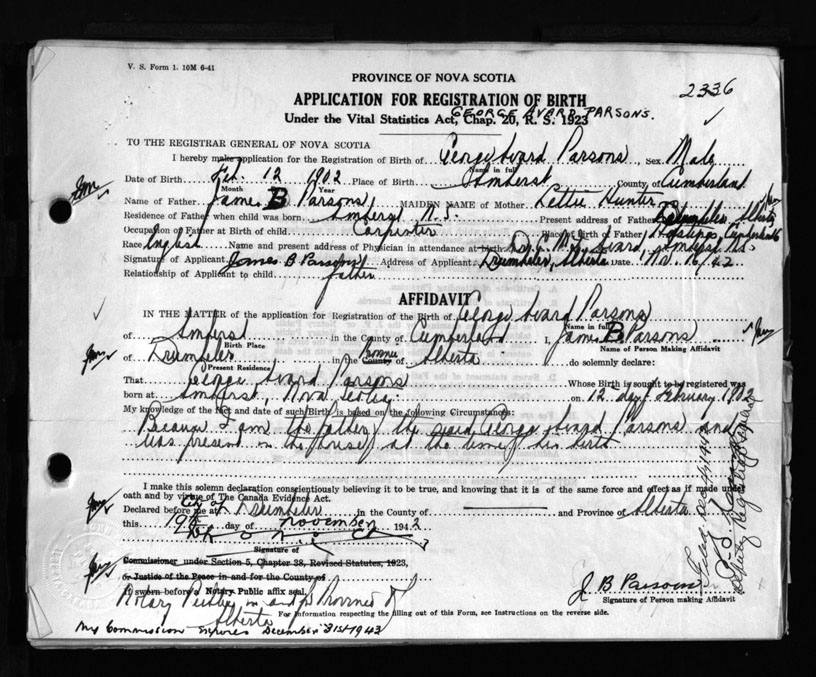 V. S. Form 1. 10M 6-41
PROVINCE OF NOVA SCOTIA
2336
APPLICATION FOR REGISTRATION OF BIRTH
GEORGE PARSONS.
Under the Vital Statistics Act, Chap. 20, R. S. 1923
TO THE REGISTRAR GENERAL OF NOVA SCOTIA
I hereby make application for the Registration of Birth of George Parsons, Sex Male
Name in full
Date of Birth Feb. 12 1902 Place of Birth Amherst County of Cumberland
Month Year
Name of Father James B Parsons MAIDEN NAME of Mother Lettie Hunter
Residence of Father when child was born Amherst N.S. Present address of Father Alberta
Occupation of Father at Birth of child Carpenter Place of Birth of Father
Race English Name and present address of Physician in attendance at birth Amherst N.S.
Signature of Applicant James B Parsons Address of Applicant Drumheler, Alberta Date Nov. 16/42
Relationship of Applicant to child father
AFFIDAVIT
IN THE MATTER of the application for Registration of the Birth of George Parsons
Name in full
of Amherst in the County of Cumberland I, James B Parsons
Birth Place Name of Person Making Affidavit
of Drumheler in the Province County of Alberta do solemnly declare:
Present Residence
That George Parsons Whose Birth is sought to be registered was
born at Amherst, Nova Scotia on 12 day of February 1902
My knowledge of the fact and date of such Birth is based on the following Circumstances:
Because I am the father of the said George Parsons and
was present in the house at the time of his birth
I make this solemn declaration conscientiously believing it to be true, and knowing that it is of the same force and effect as if made under
oath and by virtue of The Canada Evidence Act.
Declared before me at City of Drumheler in the County of and Province of Alberta
this 19th day of November 1942
Signature of
Commissioner under Section 5, Chapter 38, Revised Statutes, 1923,
or Justice of the Peace in and for the County of
If sworn before a Notary Public affix seal.
J B Parsons
Signature of Person making Affidavit
Notary Public in and for Province of
Alberta
For information respecting the filling out of this Form, see Instructions on the reverse side.
My Commission Expires December 31st 1942